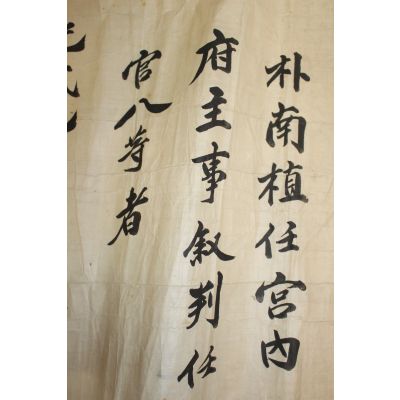 朴南植任宮內
府主事叙判任
官八等者